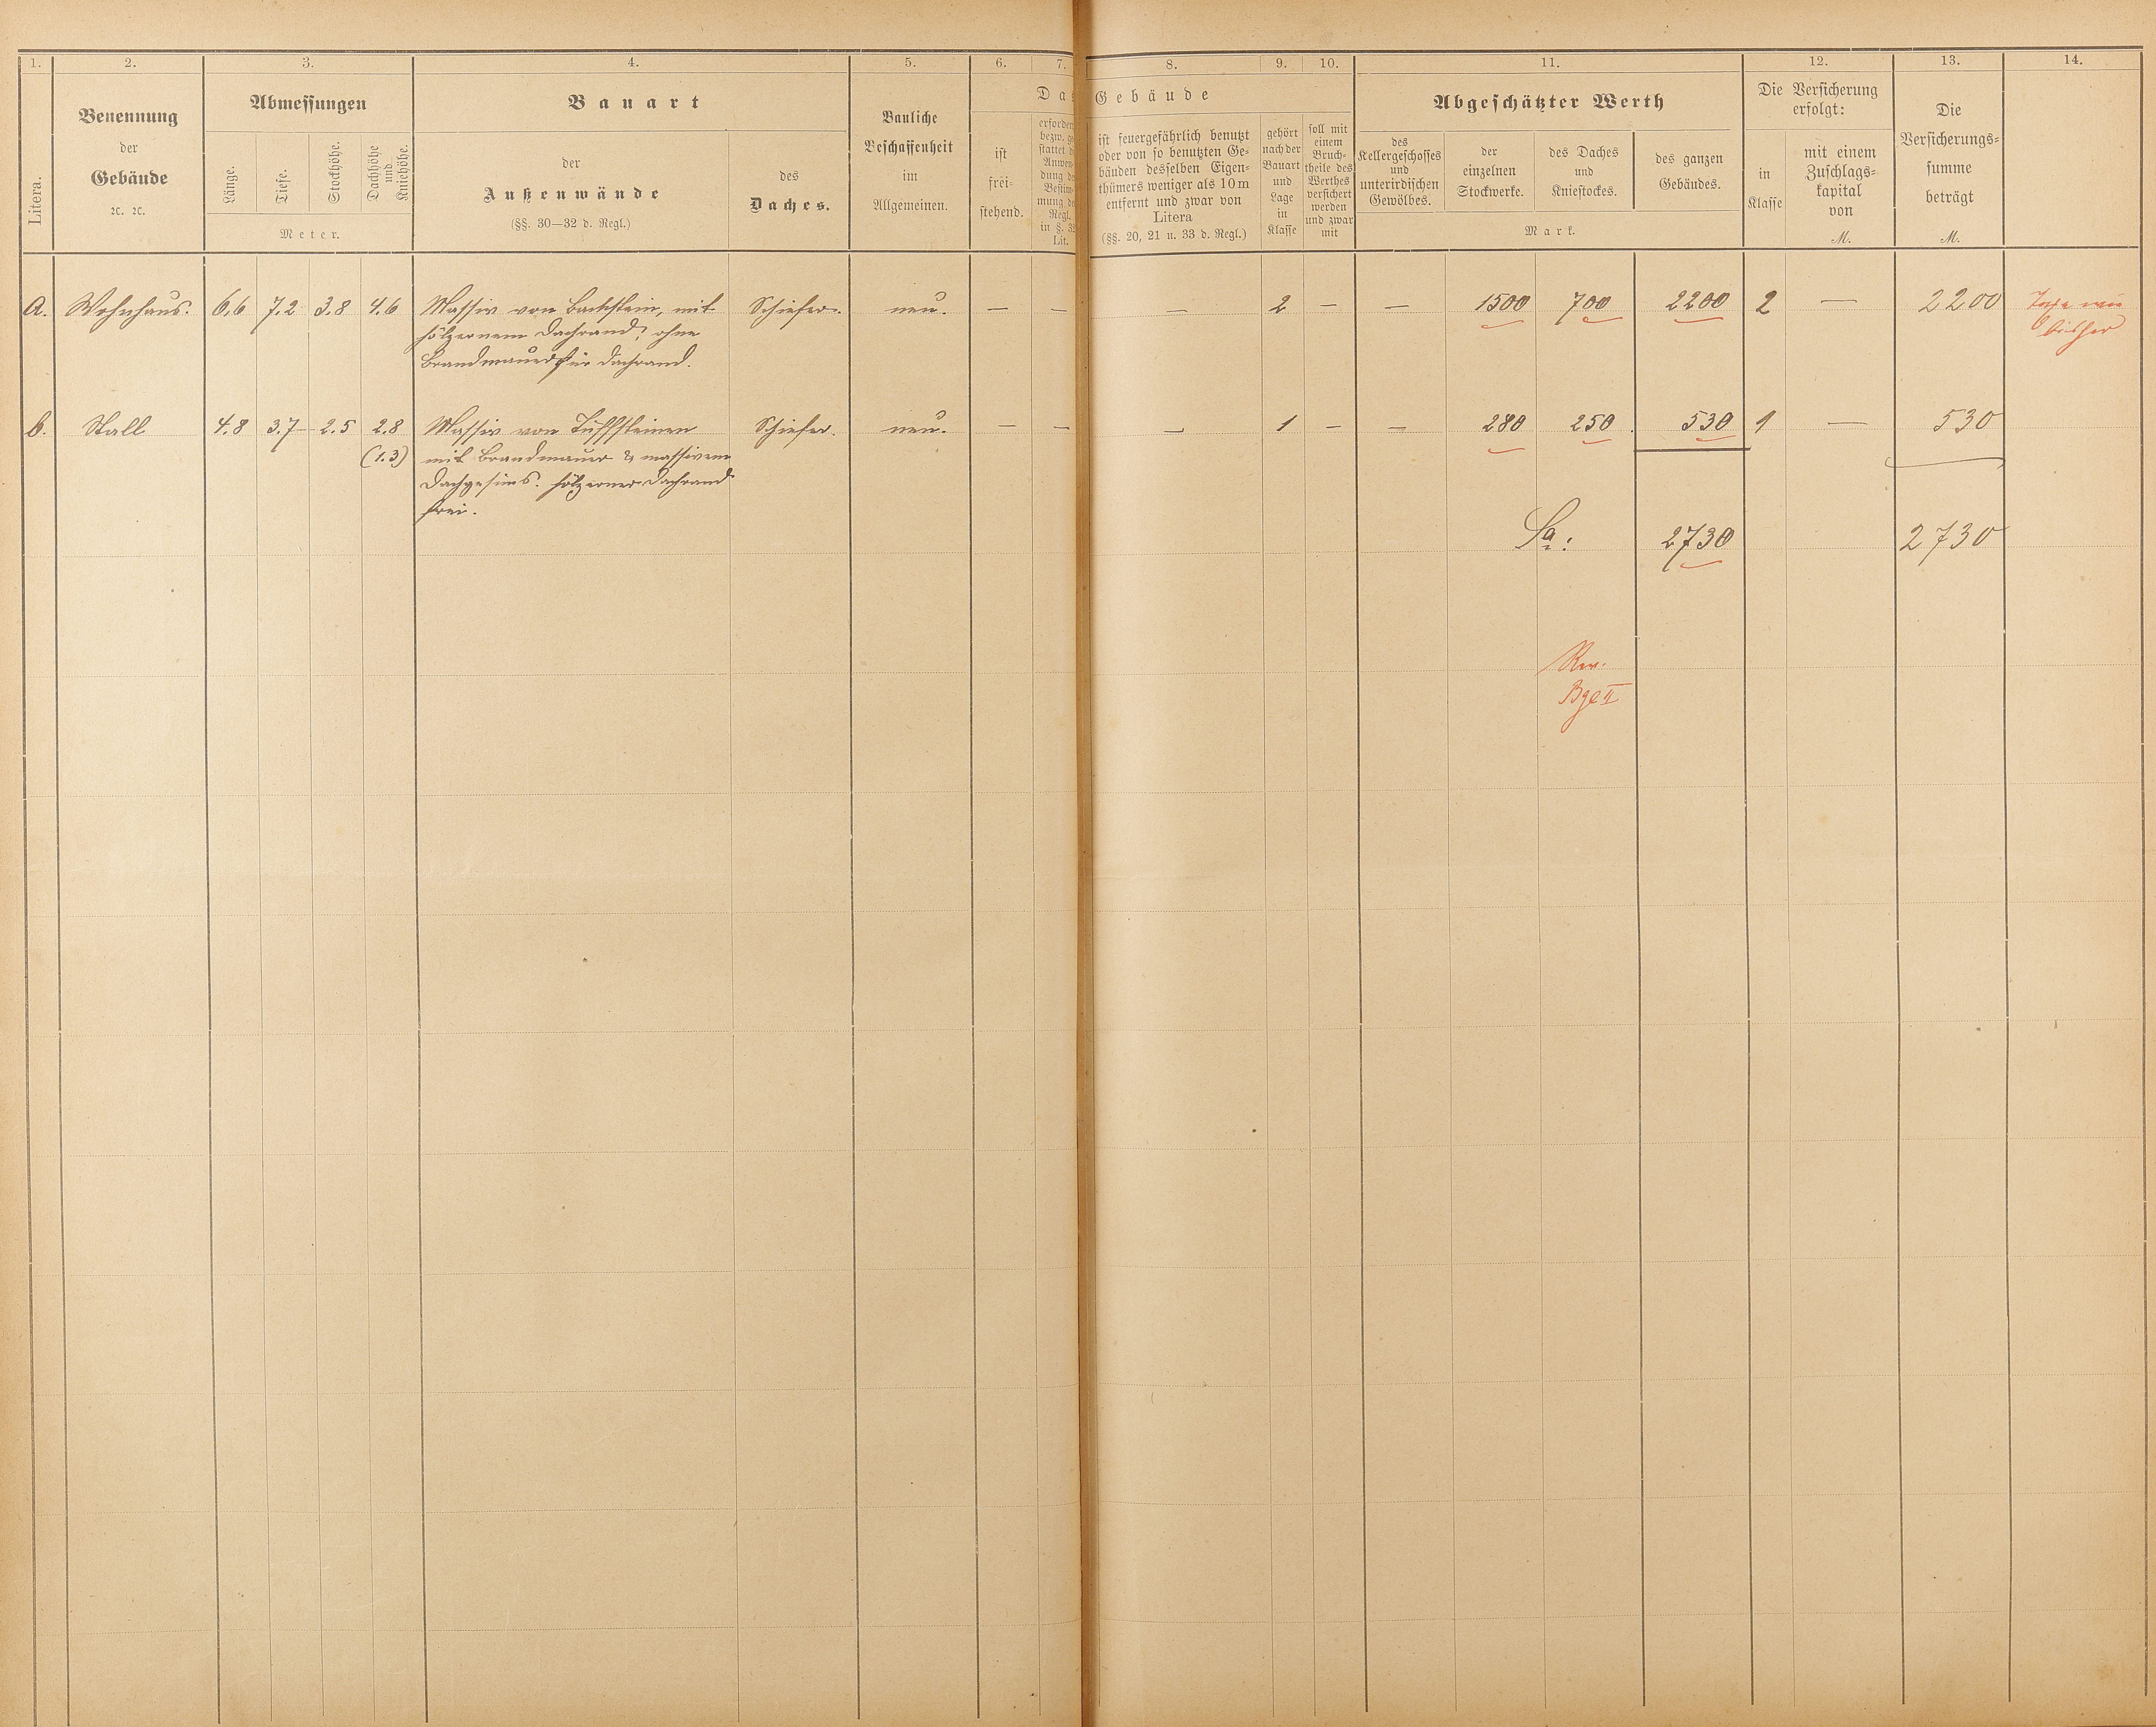 1. 2. 3. 4. 5. 6. 7. 8. 9. 10. 11. 12. 13. 14.
Litera.
Benennung
der
Gebäude
ꝛc. ꝛc.
Abmessungen
Länge.
Tiefe.
Stockhöhe.
Dachhöhe
und
Kniehöhe.
Meter.
Bauart
der
Außenwände
(§§. 30—32 d. Regl.)
des
Daches.
Bauliche
Beschaffenheit
im
Allgemeinen.
Das Gebäude
ist
frei-
stehend.
ist feuergefährlich benutzt
oder von so benutzten Ge-
bäuden desselben Eigen-
thümers weniger als 10 m
entfernt und zwar von
Litera
(§§. 20, 21 u. 33 d. Regl.)
gehört
nach der
Bauart
und
Lage
in
Klasse
soll mit
einem
Bruch-
theile des
Werthes
versichert
werden
und zwar
mit
Abgeschätzter Werth
des
Kellergeschosses
und
unterirdischen
Gewölbes.
der
einzelnen
Stockwerke.
des Daches
und
Kniestockes.
des ganzen
Gebäudes.
Mark.
Die Versicherung
erfolgt:
in
Klasse
mit einem
Zuschlags-
kapital
von
M.
Die
Versicherungs-
summe
beträgt
M.
A. Wohnhaus. 6,6 7.2 3.8 4.6 Massiv von Backstein, mit Schiefer. neu. — — — 2 — — 1500 700 2200 2 — 2200 Taxe wie
hölzernem Dachrand, ohne bisher
Brandmauer für Dachrand.
b. Stall 4.8 3.7 2.5 2.8 Massiv von Tuffsteinen Schiefer. neu. — — — 1 — — 280 250 530 1 — 530
(1.3) mit Brandmauer & massivem
Dachgesims. hölzerner Dachrand
frei.
Sa: 2730 2730
Rev.